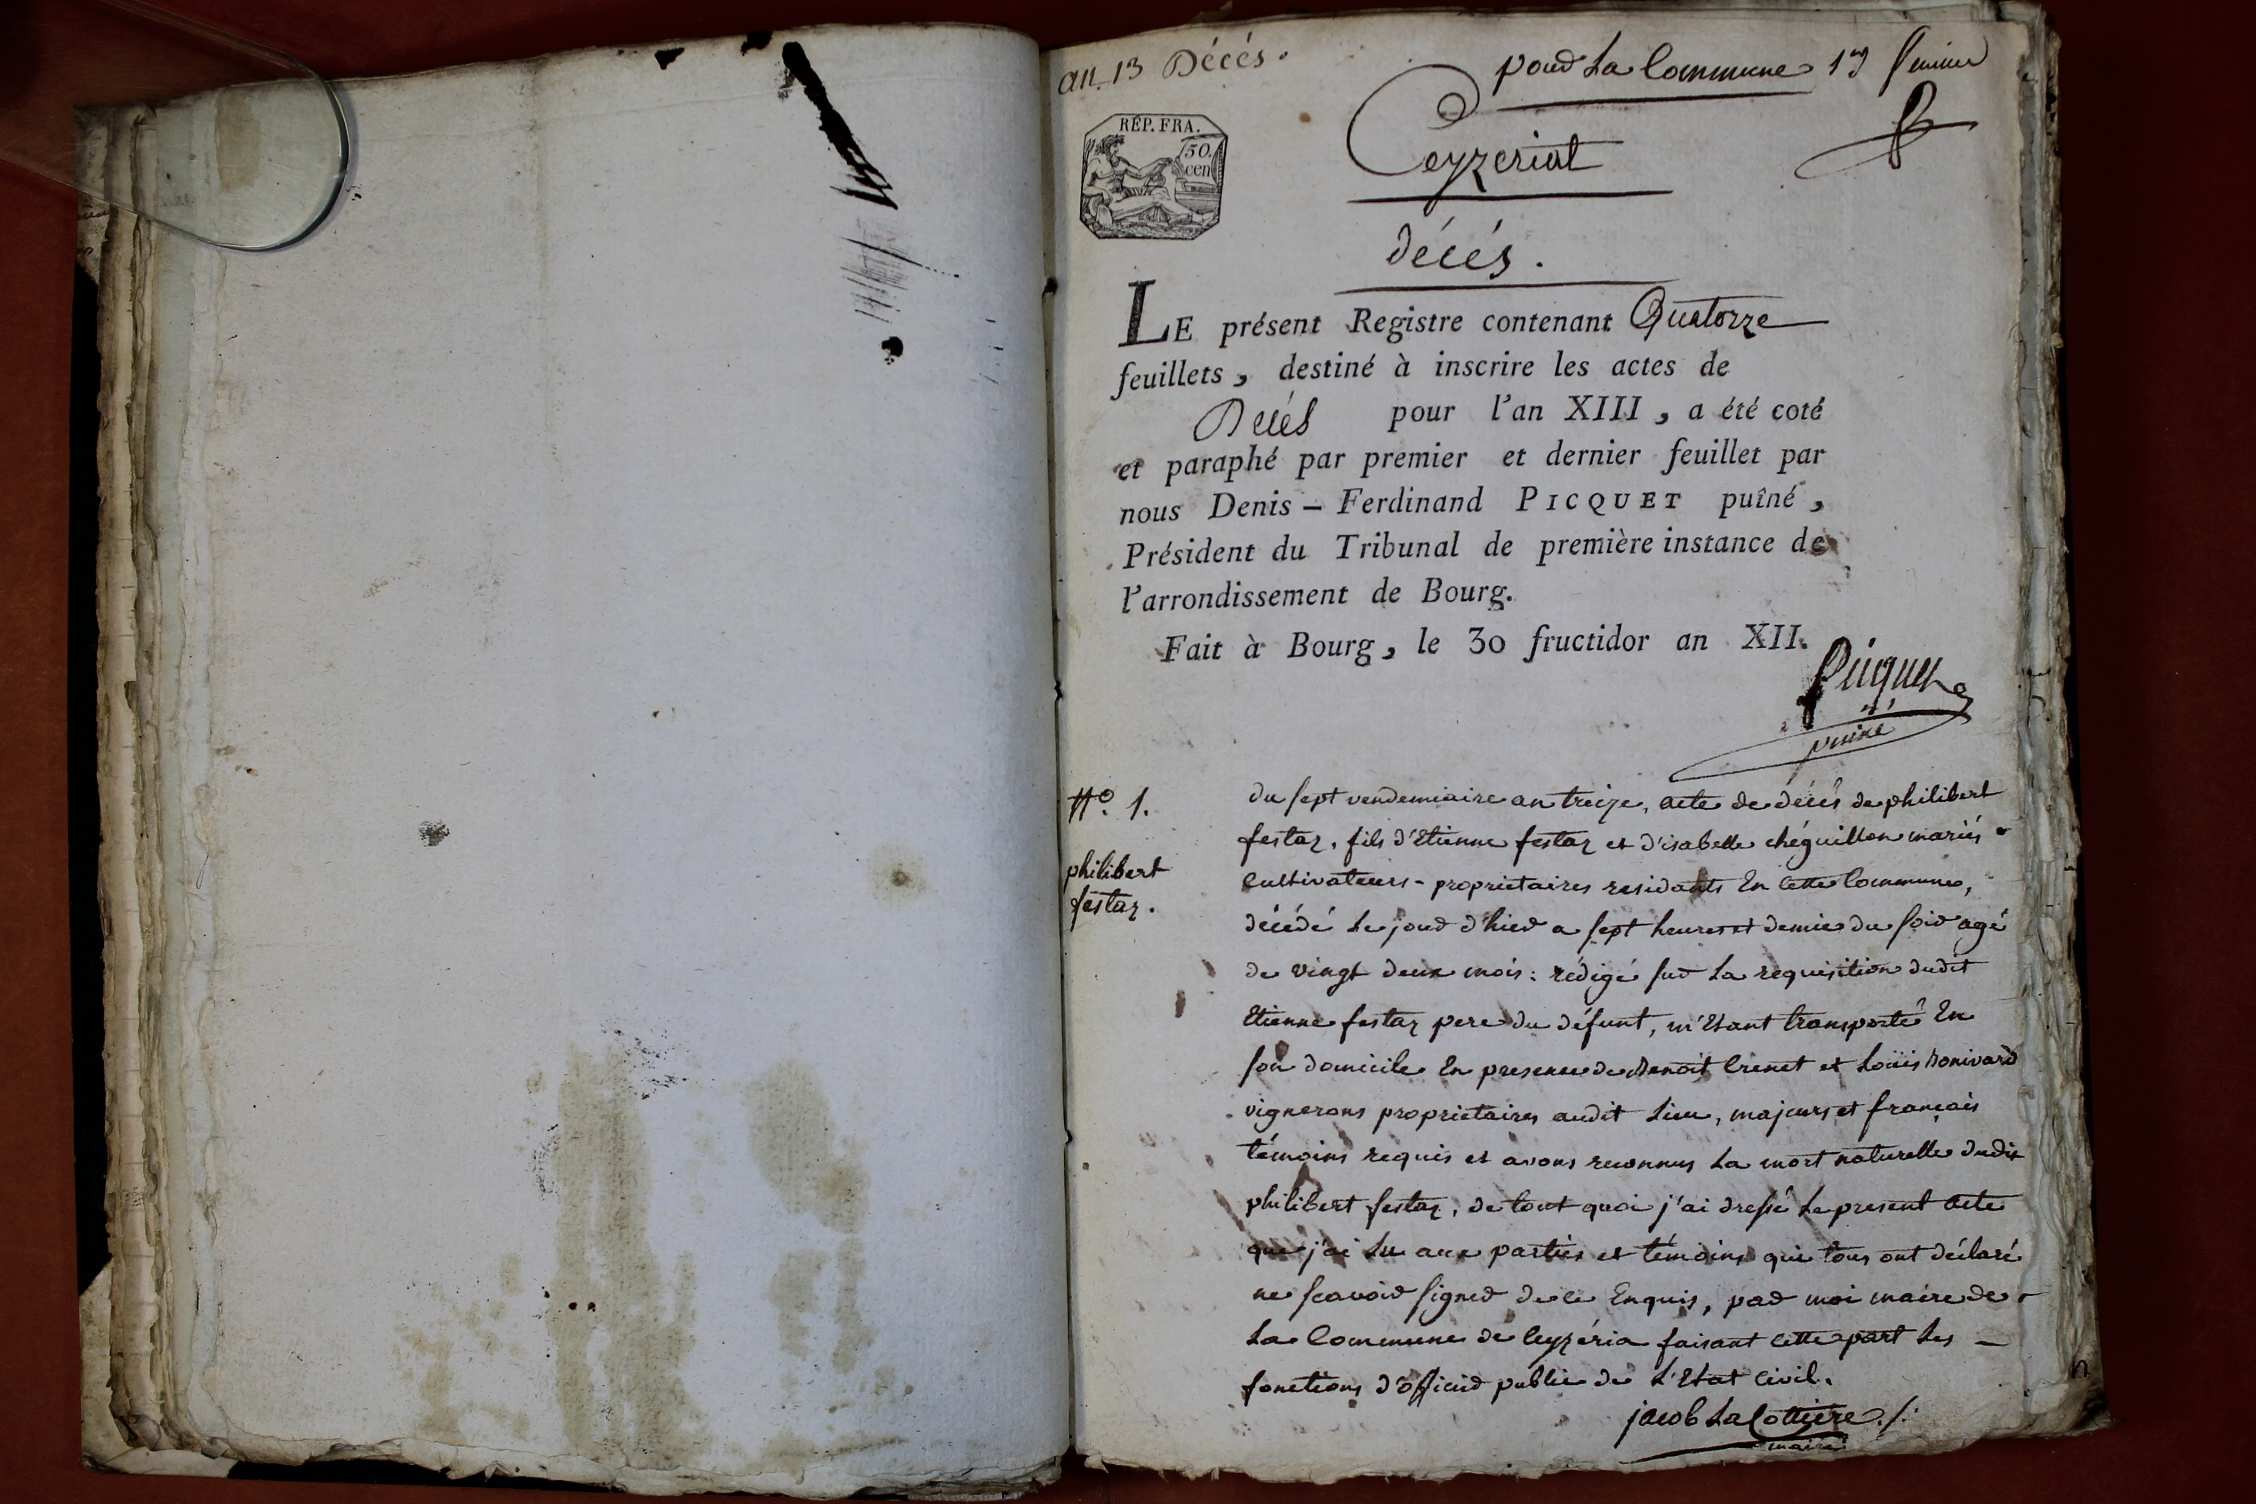 an 13 Décés.
pour La Commune 1er
REP. FRA.
50.
cen
Ceyzeriat
décés.
LE présent Registre contenant Quatorze
feuillets, destiné à inscrire les actes de
Décés pour l'an XIII, a été coté
et paraphé par premier et dernier feuillet par
nous Denis – Ferdinand PICQUET puîné,
Président du Tribunal de première instance de
l'arrondissement de Bourg.
Fait à Bourg, le 30 fructidor an XII.
Picquet
puiné
N.º 1.
philibert
festaz.
du sept vendemiaire an treize, acte de décés de philibert
festaz, fils d'Etienne festaz et d'isabelle chéguillon mariés
Cultivateurs - proprietaires residants En Cette Commune,
décédé Le jour d'hier a sept heures et demie du soir agé
de vingt deux mois : rédigé sur La requisition dudit
Etienne festaz pere du défunt, m'Etant transporté En
son domicile En presence de Benoit Crenet et Loüis Bonivard
vignerons proprietaires audit Lieu, majeurs et français
témoins requis et avons reconnus La mort naturelle dudit
philibert festaz, de tout quoi j'ai dressé Le present acte
que j'ai Lu aux parties et témoins qui tous ont déclaré
ne sçavoir signer de ce Enquis, par moi maire de
La Commune de Ceyzéria faisant Cette part Les
fonctions d'officier public de L'Etat Civil.
jacob La Cottiere
maire